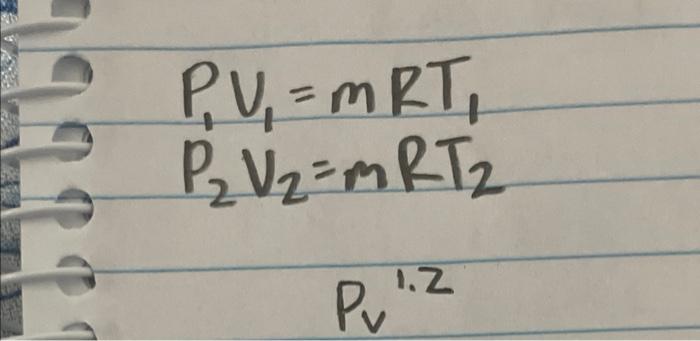 P₁V₁=mRT₁
P₂V₂=mRT₂
Pv¹·²